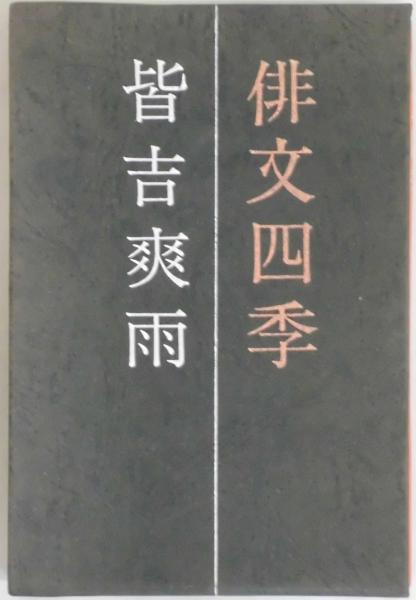 俳文四季
皆吉爽雨